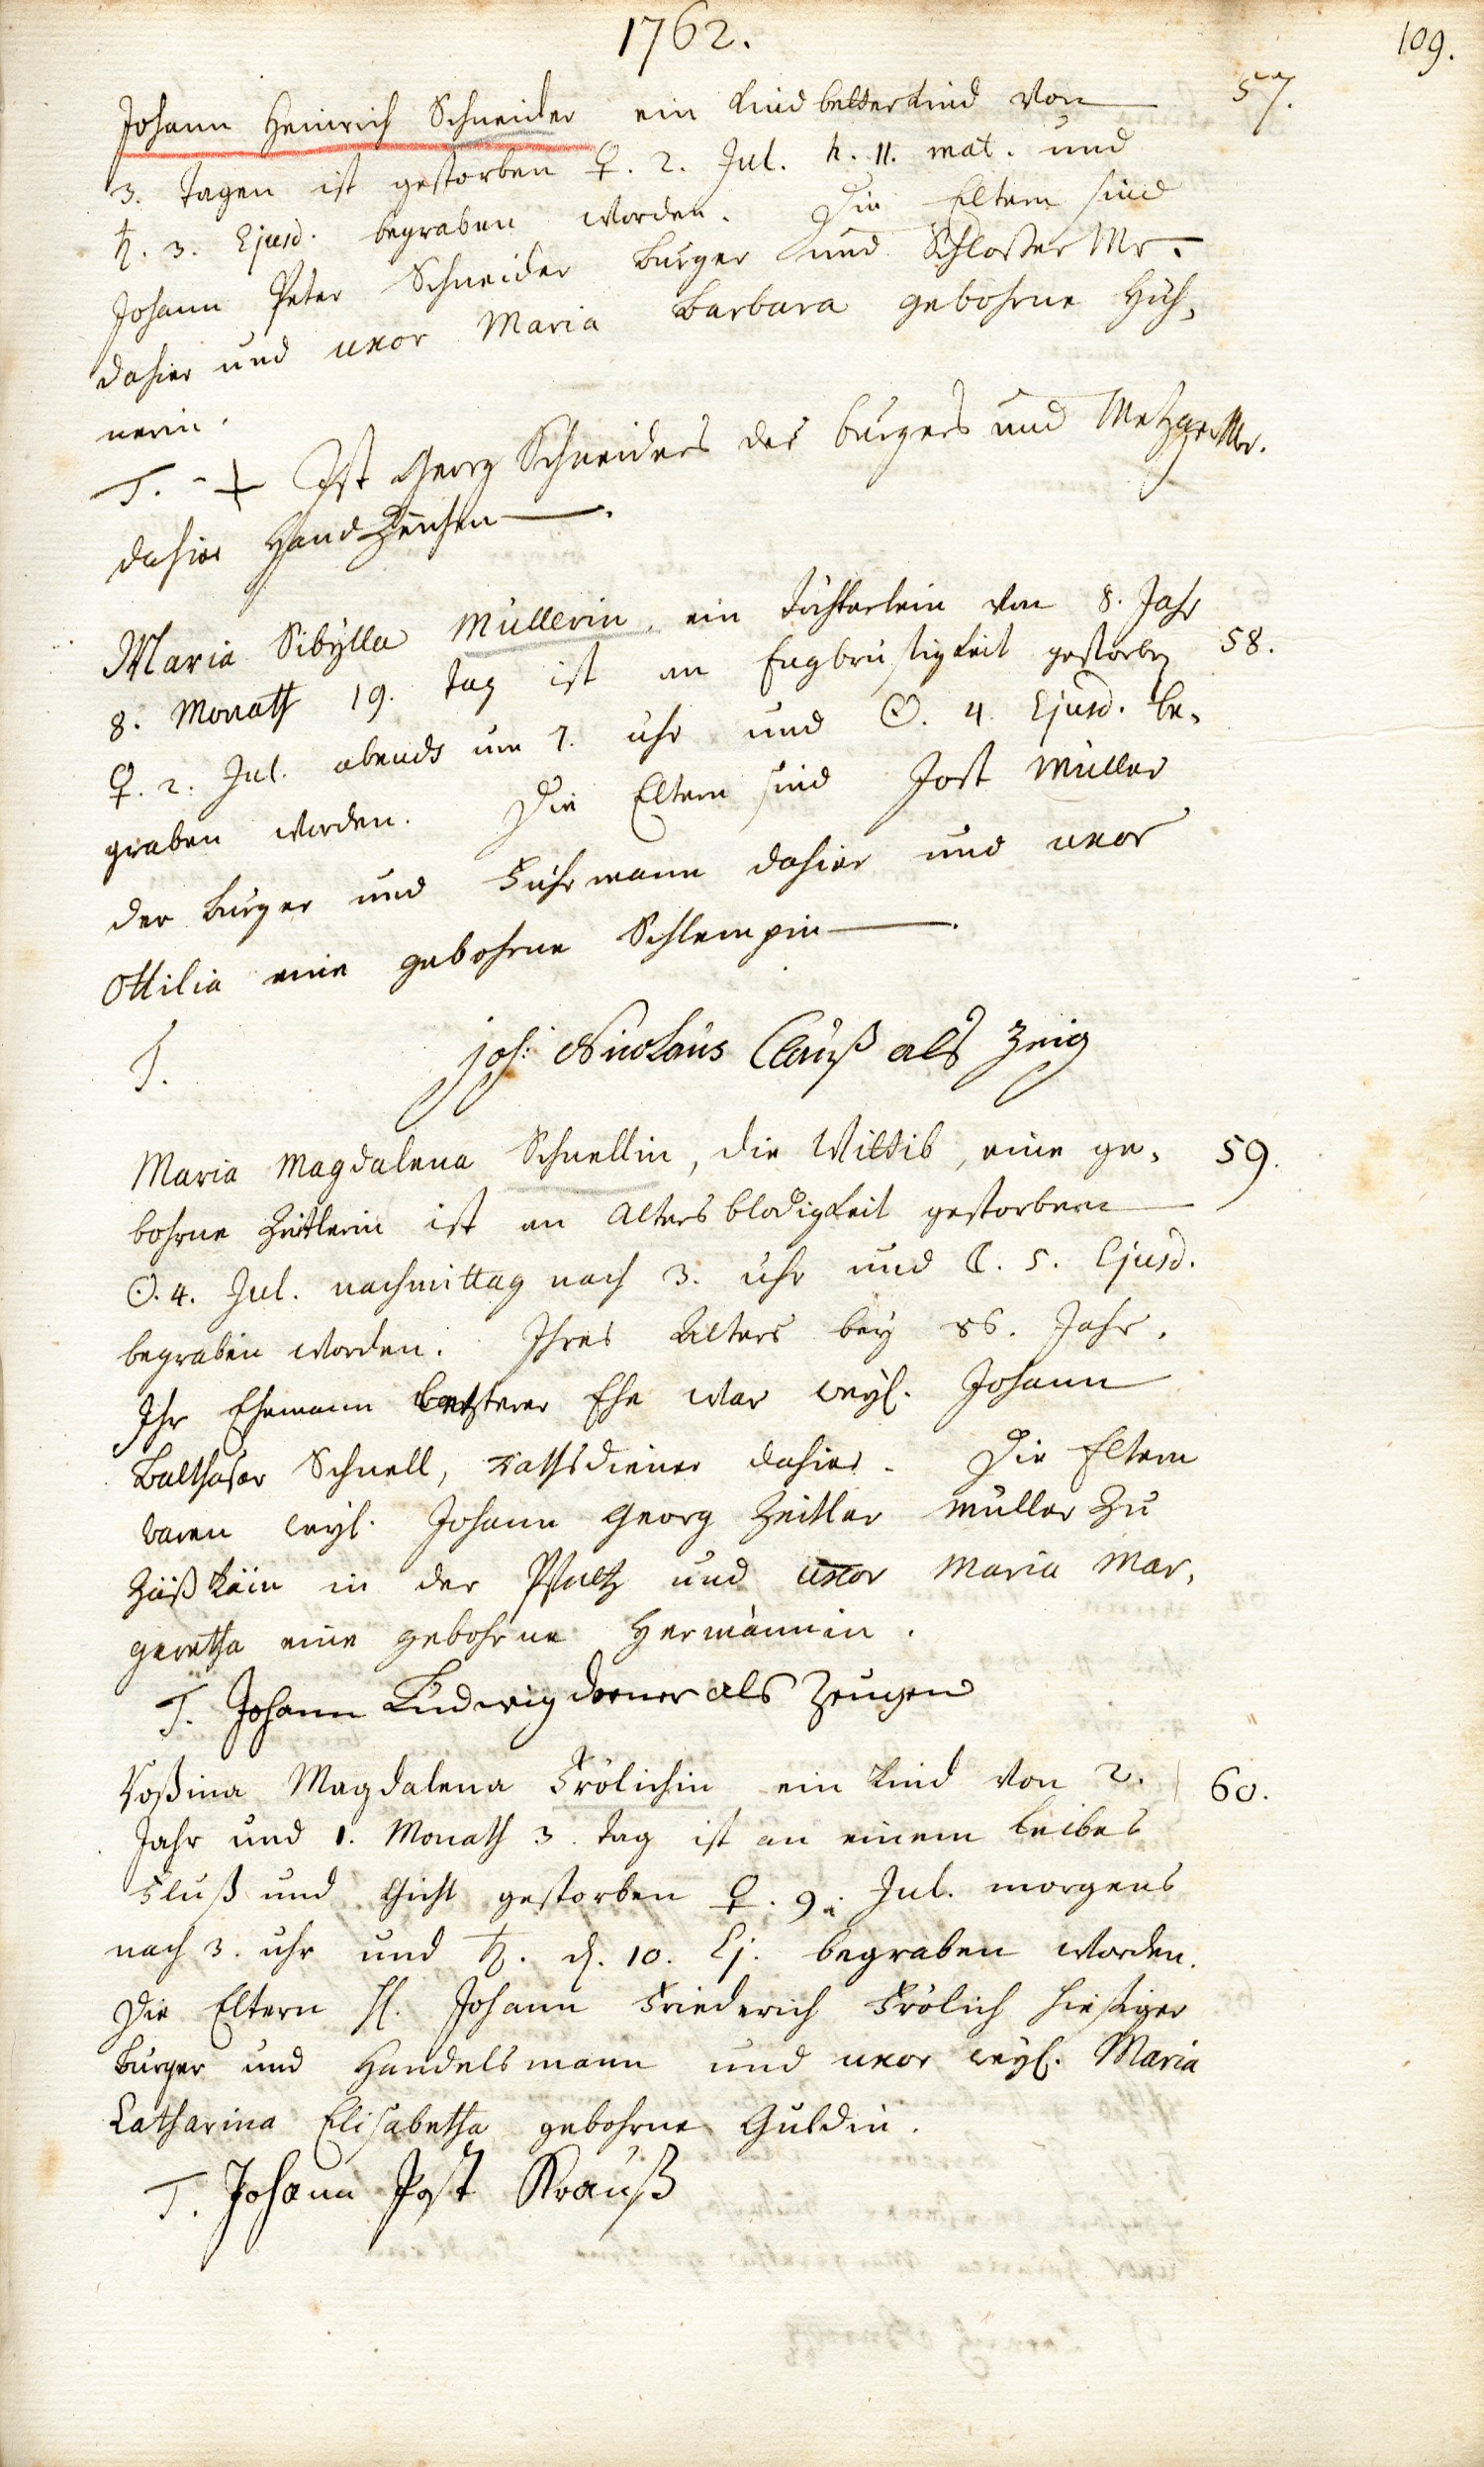 1762.
109.
Johann Heinrich Schneider ein Kindbetterkind von 57.
3. Tagen ist gestorben ♀. 2. Jul. h. 11. mat. und
♄. 3. Ejusd. begraben worden. Die Eltern sind
Johann Peter Schneider Burger und Schlosser Mr.
dahier und uxor Maria Barbara gebohrne Hüh,
nerin.
T. - + Ist Georg Schneiders des burgers und Metzger Mr.
dahier Handzeichen.
Maria Sibÿlla Müllerin, ein Töchterlein von 8. Jahr
8. Monath 19. Tag ist an Engbrüstigkeit gestorben 58.
♀. 2. Jul. abends um 7. uhr und ☉. 4 Ejusd. be,
graben worden. Die Eltern sind Jost Müller
der Burger und Fuhrmann dahier und uxor
Ottilia eine gebohrne Schlempin.
T. joh: Nicolaus Clauß als Zeig
Maria Magdalena Schnellin, die Wittib, eine ge, 59.
bohrne Zeitlerin ist an Altersblödigkeit gestorben
☉. 4. Jul. nachmittag nach 3. uhr und ☾. 5. Ejusd.
begraben worden. Ihres Alters bey 86. Jahr.
Ihr Ehemann letzterer Ehe war weyl. Johann
Balthasar Schnell, rathsdiener dahier. Die Eltern
waren weyl. Johann Georg Zeitler Müller zu
in der Pfaltz und uxor Maria Mar,
garetha eine gebohrne Hermännin.
T. Johann Ludwig dorner als Zeugen
Roßina Magdalena Frölichin ein Kind von 2. 60.
Jahr und 1. Monath 3. tag ist an einem Leibes
Fluß und Gicht gestorben ♀. 9. Jul. morgens
nach 3. uhr und ♄. d. 10. Ej. begraben worden.
Die Eltern sl. Johann Friederich Frölich hiesiger
Burger und Handelsmann und uxor weyl. Maria
Catharina Elisabetha gebohrne Guldin.
T. Johann Jost Krauß